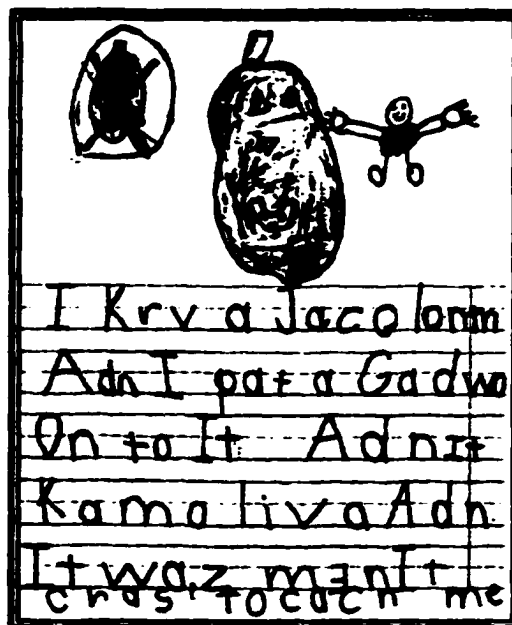 I Krv a Jacolonm
Adn I pat a Gadwo
On to It Adn It
Kama liva Adn
It waz mƎn It
cras, tocach me